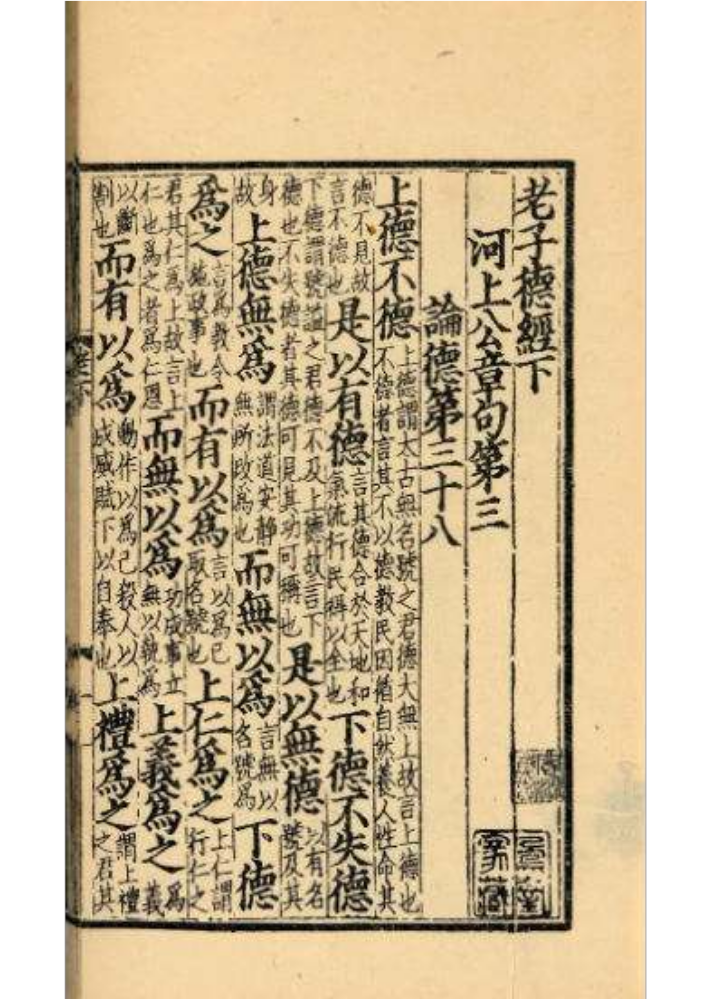 老子德經下
河上公章句第三
論德第三十八
上德不德上德謂太古無名號之君德大無上故言上德也不德者言其不以德教民因循自然養人性命其
德不見故言不德也是以有德言其德合於天地和氣流行民得以全也下德不失德
下德謂號謚之君德不及上德故言下德也不失德者其德可見其功可稱也是以無德以有名號及其
身故上德無爲謂法道安静無所改爲也而無以爲言無以名號爲下德
爲之言爲教令施政事也而有以爲言以爲己取名號也上仁爲之上仁謂行仁之
君其仁爲上故言上仁也爲之者爲仁恩而無以爲功成事立無以執爲上義爲之爲義
以斷割也而有以爲動作以爲己殺人以成威賊下以自奉也上禮爲之謂上禮之君其